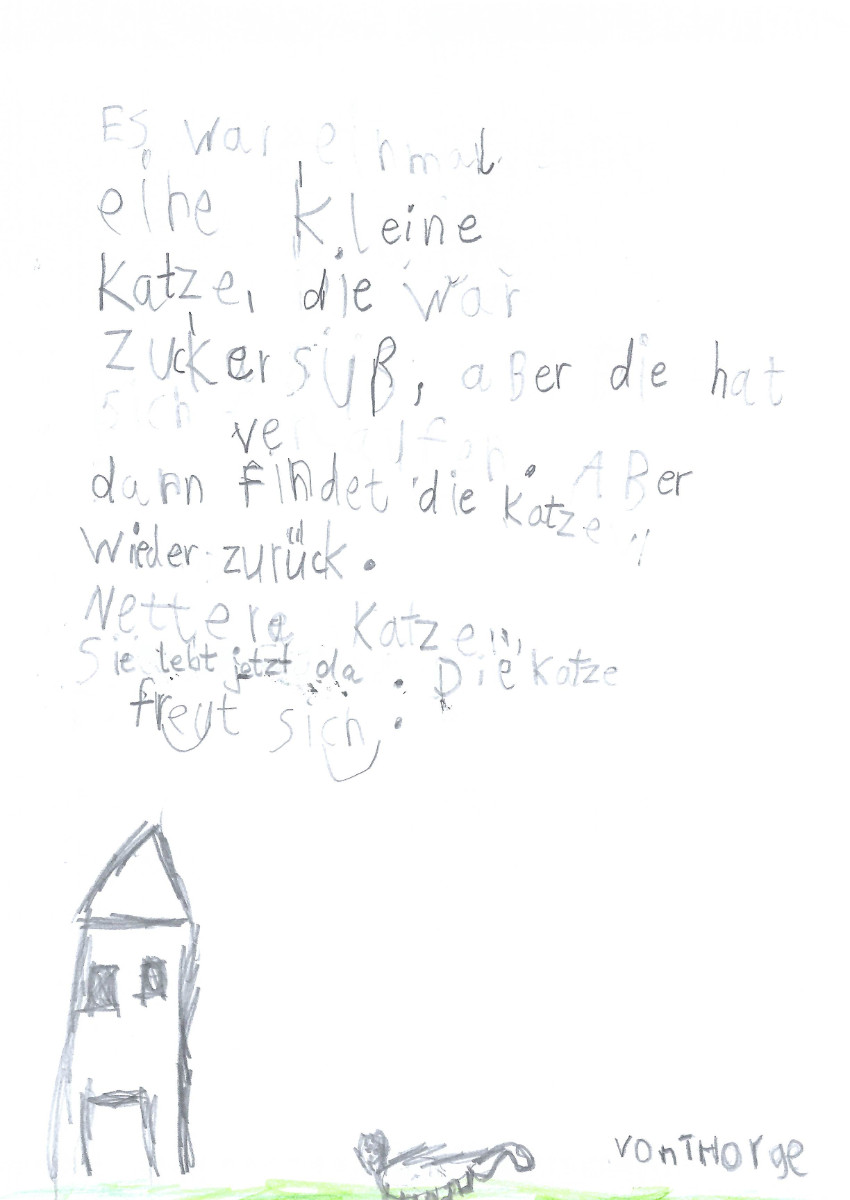 Es war einmal
eine kleine
Katze, die war
Zuckersüß, aBer die hat
sich
dann findet die Katze ABer
wieder zurück.
Nettere Katzen
Sie lebt jetzt da. Die Katze
freut sich.
von THorge